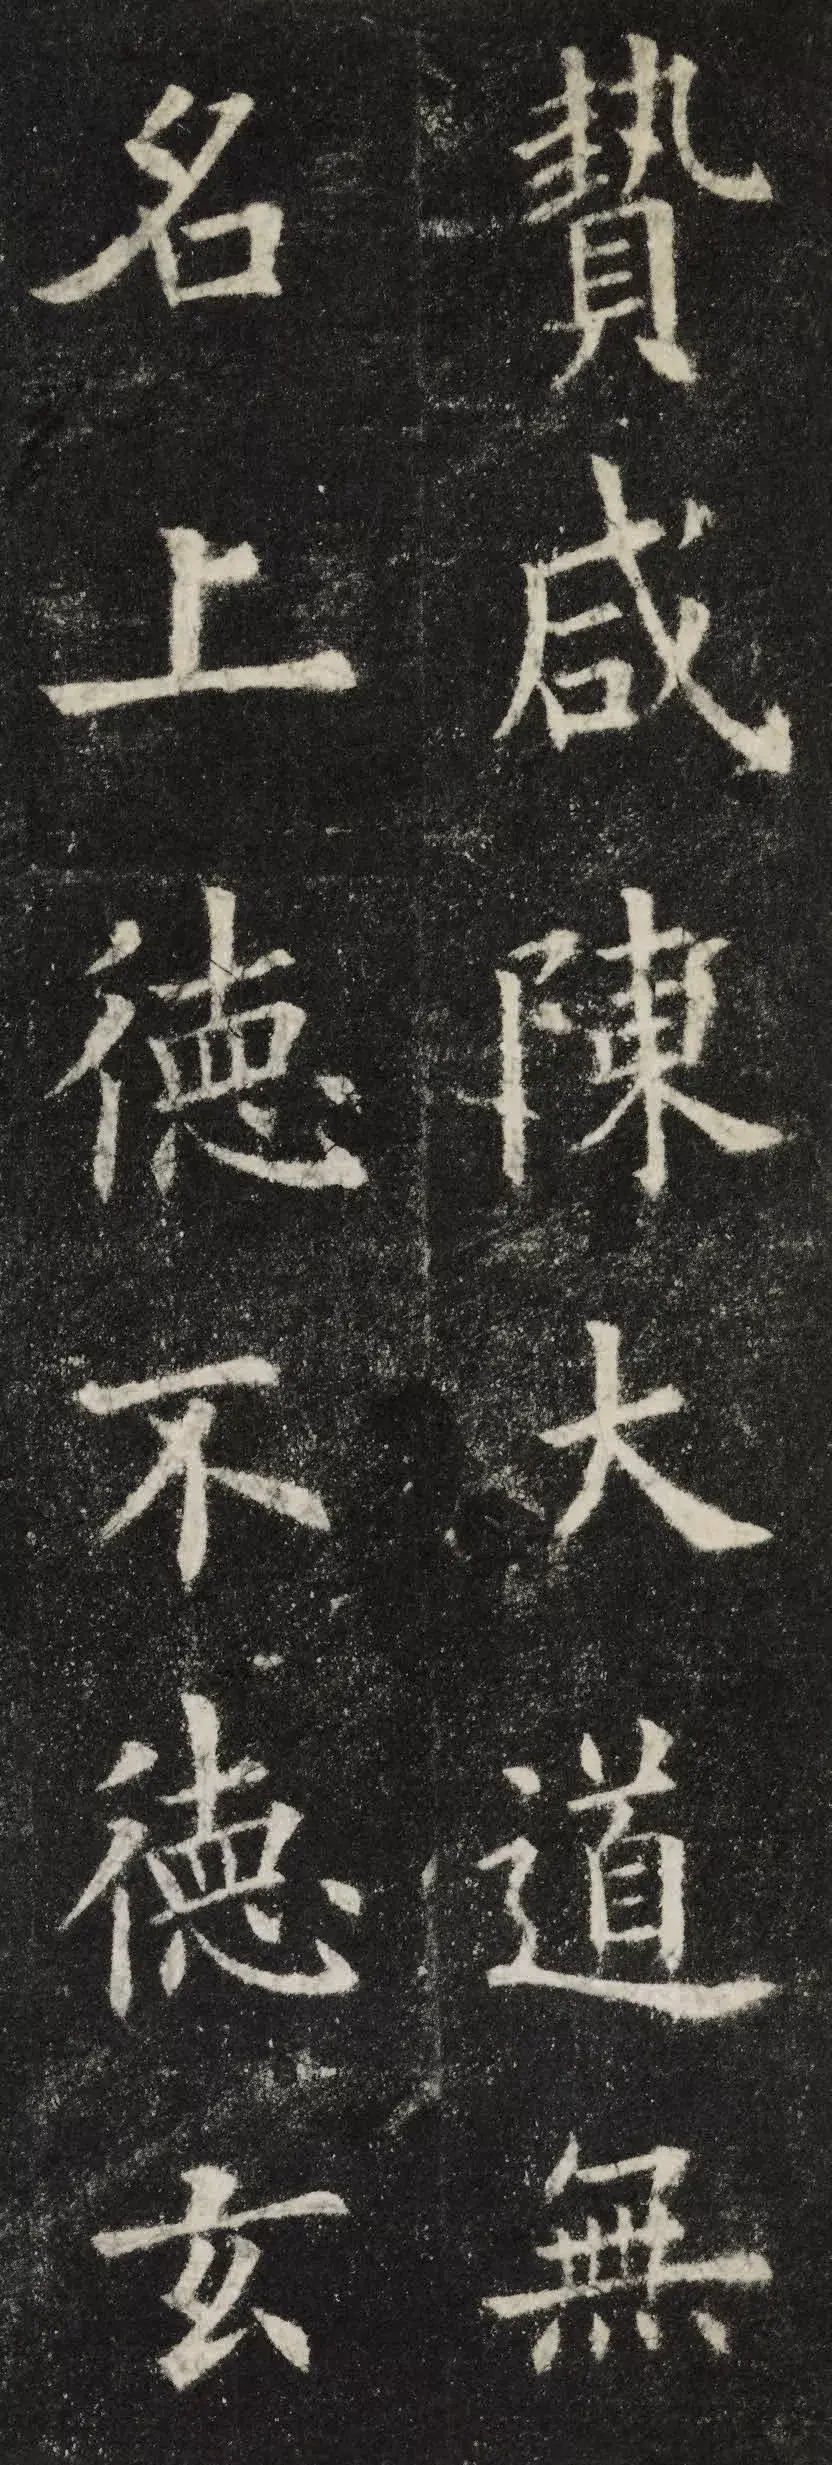 贄咸陳大道無
名上德不德玄